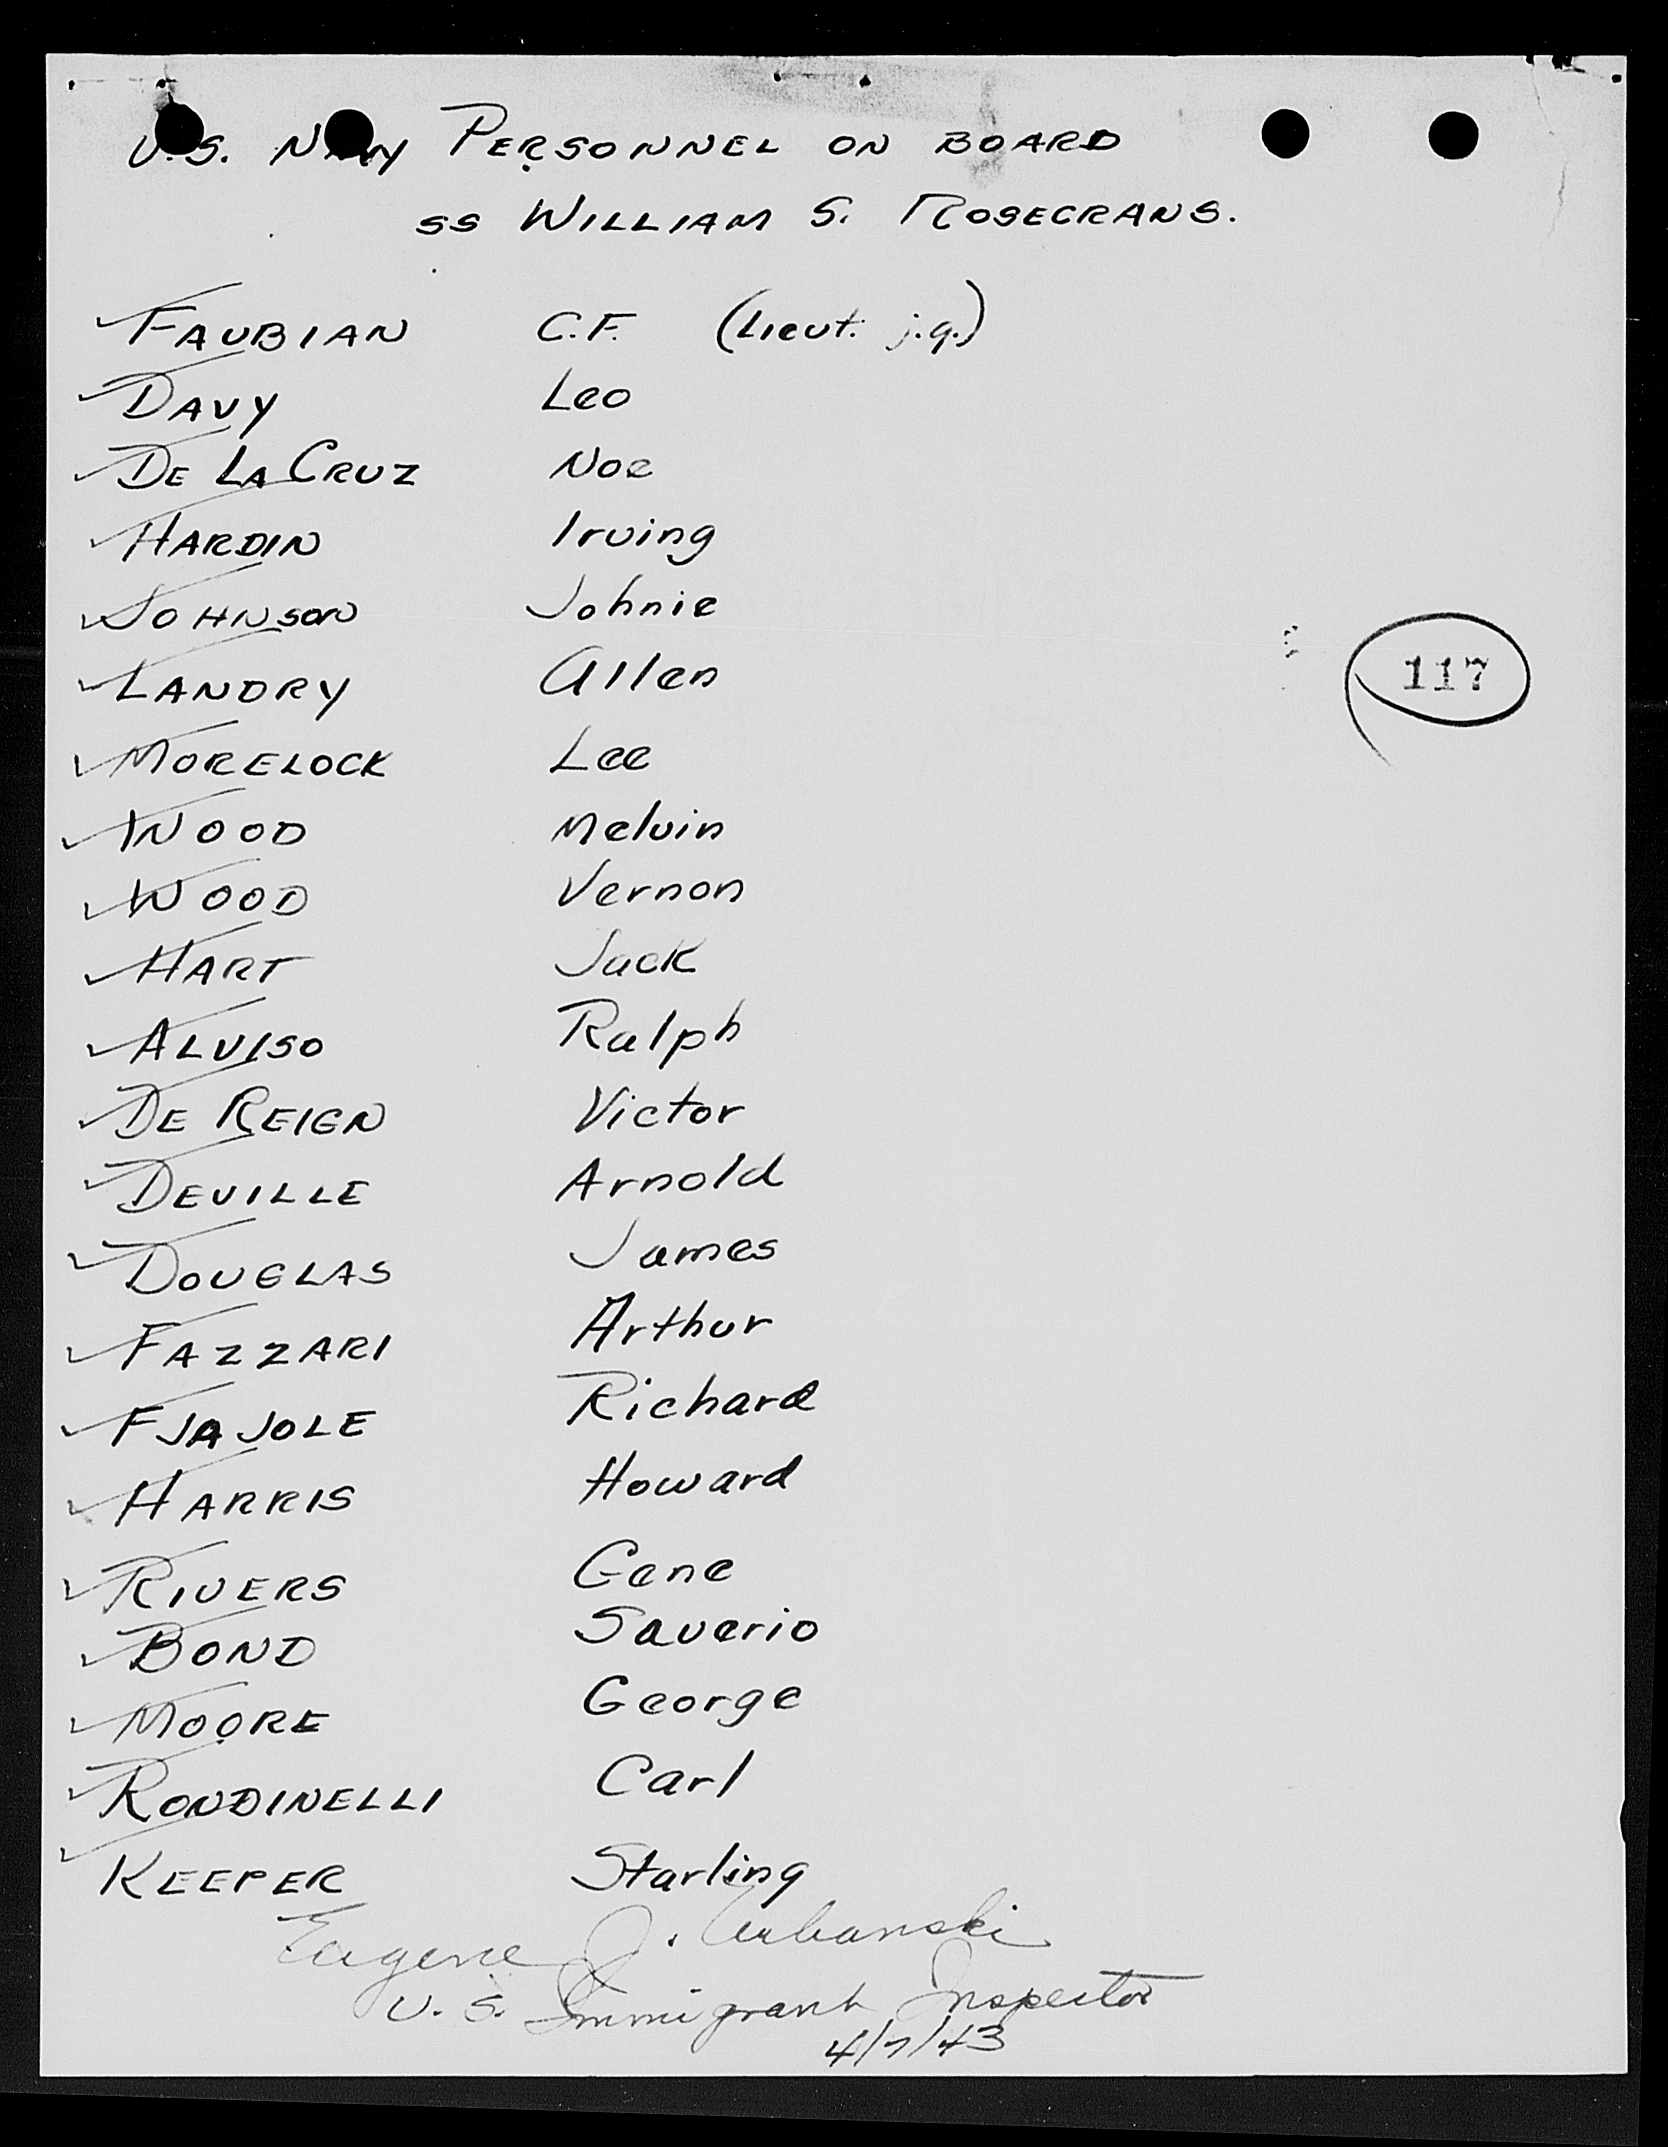 U.S. Navy PERSONNEL ON BOARD
SS WILLIAM S. ROSECRANS.
FAUBIAN C.F. (Lieut. j.g.)
DAVY Leo
DE LA CRUZ Noe
HARDIN Irving
JOHNSON Johnie
LANDRY Allen
MORELOCK Lee
WOOD Melvin
WOOD Vernon
HART Jack
ALVISO Ralph
DE REIGN Victor
DEVILLE Arnold
DOUGLAS James
FAZZARI Arthur
FJAJOLE Richard
HARRIS Howard
RIVERS Gene
BOND Saverio
MOORE George
RONDINELLI Carl
KEEPER Starling
117
Eugene J. Urbanski
U.S. Immigrant Inspector
4/7/43